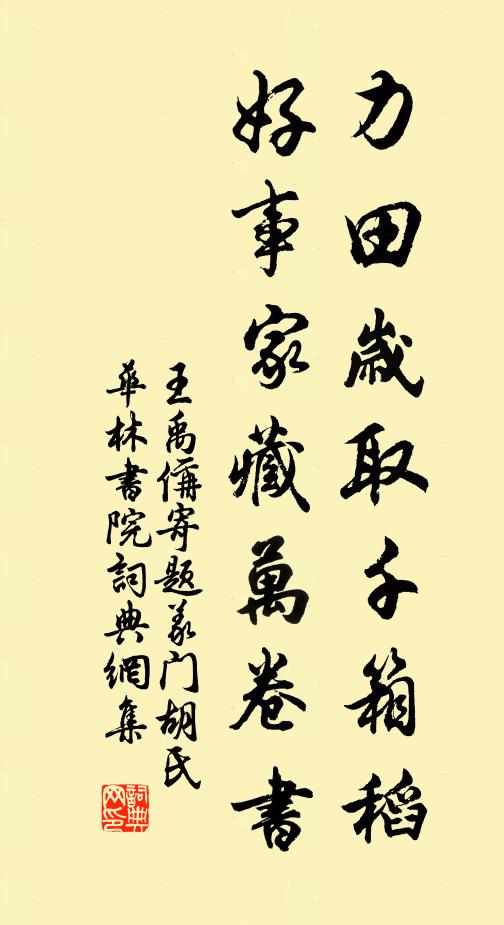 力田歲取千箱稻
好事家藏萬卷書
王禹偁寄題義门胡氏
華林書院詞典網集
詞典网印